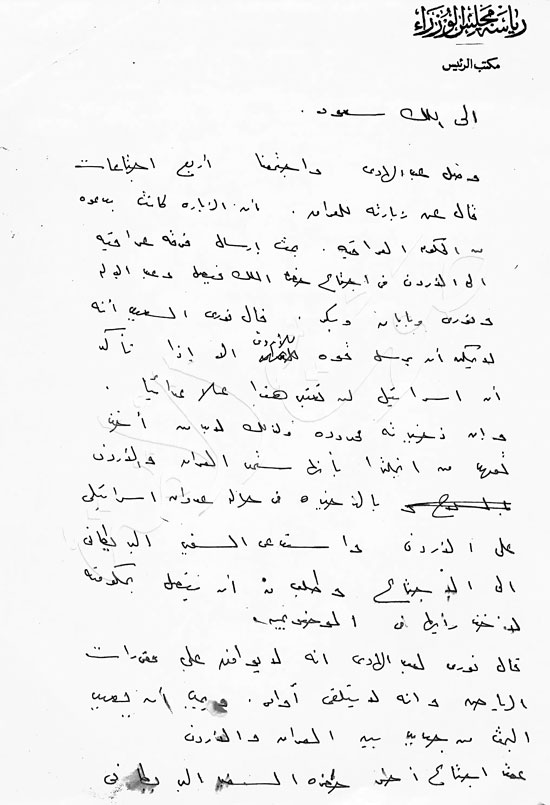 رياسة مجلس الوزراء
مكتب الرئيس
الى الملك سعود .
وصل عبد الهادى واجتمعنا أربع اجتماعات
قال عن زيارته للعراق . أن الزياره كانت بدعوه
من الحكومه العراقيه . بحث إرسال فرقه عراقيه
الى الأردن فى اجتماع حضره الملك فيصل وعبد الاله
ونورى وبابان وبكر . قال نورى السعيد أنه
لا يمكن أن يرسل قوه للأردن الا إذا تأكد
أن اسرائيل لن تعتبر هذا عملا عدائيا .
وان ذخيرته محدوده ولذلك لابد من أخذ
تعهد من انجلترا بأنها ستمد العراق والأردن
بالذخيره فى حالة عدوان اسرائيلى
على الأردن واستدعى السفير البريطانى
الى الاجتماع وطلب منه أن يتصل بحكومته
لأخذ رأيها فى الموضوع
قال نورى لعبد الهادى انه لا يوافق على مقررات
الرياض وانه لا يتلقى أوامر . ويجب أن يصبح
البحث من جديد بين العراق والأردن
عقد اجتماع آخر حضره السفير البريطانى